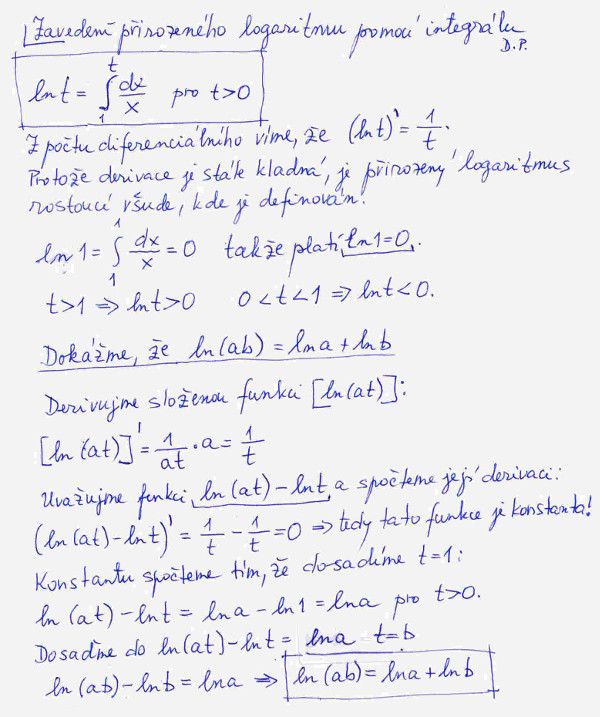 Zavedení přirozeného logaritmu pomocí integrálu
D.P.
ln t = ∫₁ᵗ dx/x pro t>0
Z počtu diferenciálního víme, že (ln t)' = 1/t.
Protože derivace je stále kladná, je přirozený logaritmus
rostoucí všude, kde je definován!
ln 1 = ∫₁¹ dx/x = 0 takže platí ln 1 = 0.
t>1 ⇒ ln t>0 0<t<1 ⇒ ln t<0.
Dokažme, že ln(ab) = ln a + ln b
Derivujme složenou funkci [ln(at)]:
[ln(at)]' = 1/at · a = 1/t
Uvažujme funkci ln(at) − ln t, a spočteme její derivaci:
(ln(at) − ln t)' = 1/t − 1/t = 0 ⇒ tedy tato funkce je konstanta!
Konstantu spočteme tím, že dosadíme t=1:
ln(at) − ln t = ln a − ln 1 = ln a pro t>0.
Dosaďme do ln(at) − ln t = ln a t=b
ln(ab) − ln b = ln a ⇒ ln(ab) = ln a + ln b